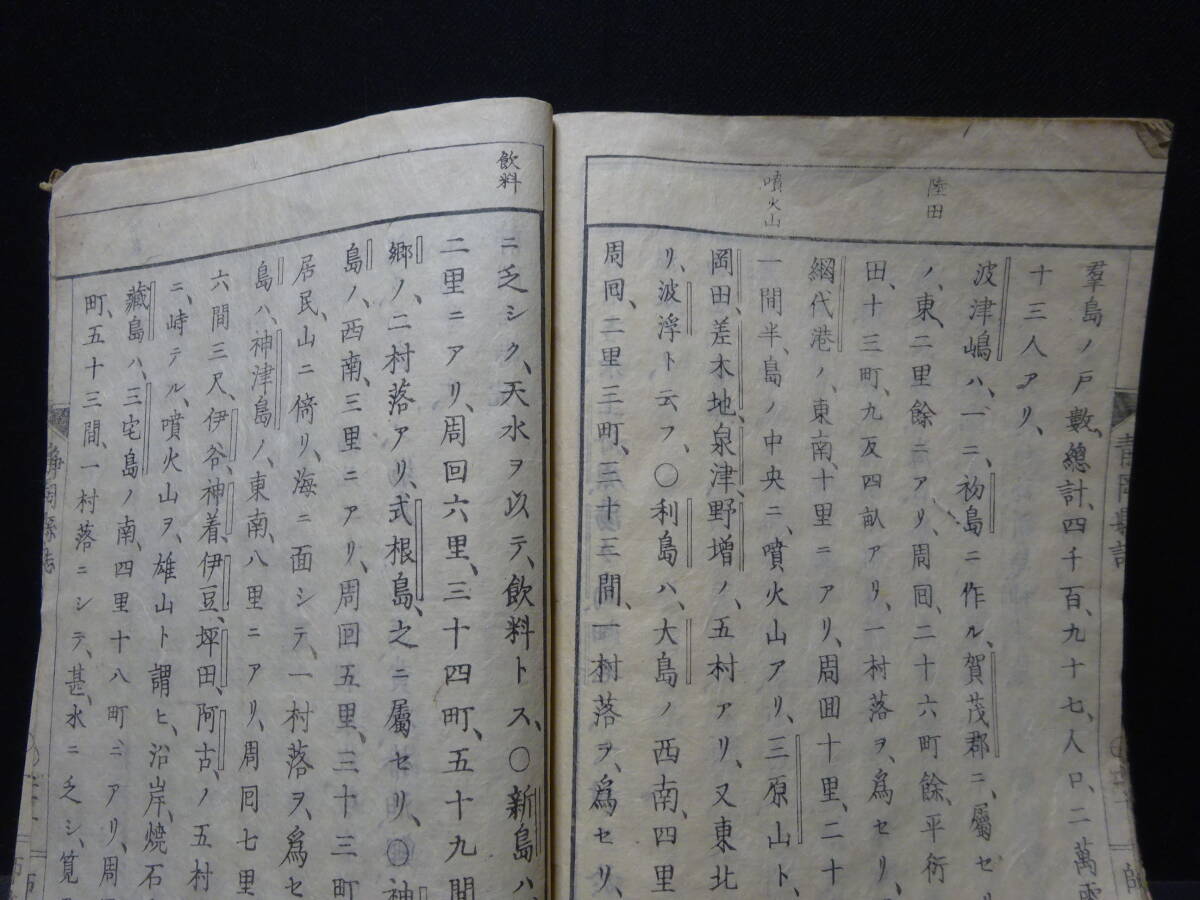 羣島ノ戸數、總計、四千百、九十七、人口、二萬
十三人アリ、
陸田
波津嶋ハ、一ニ、初島ニ作ル、賀茂郡ニ、屬セリ
ノ、東、二里餘ニアリ、周囘、二十六町餘、平衍
田、十三町、九反四畝アリ、一村落ヲ、爲セリ、
網代港ノ、東南、十里ニアリ、周囬十里、二十
噴火山
一間半、島ノ中央ニ、噴火山アリ、三原山ト、
岡田、差木地、泉津、野増ノ、五村アリ、又東北
リ、波浮ト云フ、〇利島ハ、大島ノ西南、四里
周囘、二里三町、三十三間、一村落ヲ、爲セリ、
飮料
ニ乏シク、天水ヲ以テ、飮料トス、〇新島ハ、
二里ニアリ、周回六里、三十四町、五十九間
郷ノ、二村落アリ、式根島、之ニ屬セリ、〇神
島ノ、西南、三里ニアリ、周回五里、三十三町
居民、山ニ倚リ、海ニ面シテ、一村落ヲ、爲セ
島ハ、神津島ノ、東南、八里ニアリ、周囘七里
六間三尺、伊谷、神着、伊豆、坪田、阿古、ノ五村
ニ、峙テル、噴火山ヲ、雄山ト謂ヒ、沿岸、燒石
藏島ハ、三宅島ノ南、四里十八町ニアリ、周
町、五十三間、一村落ニシテ、甚、水ニ乏シ、筧
靜岡縣誌